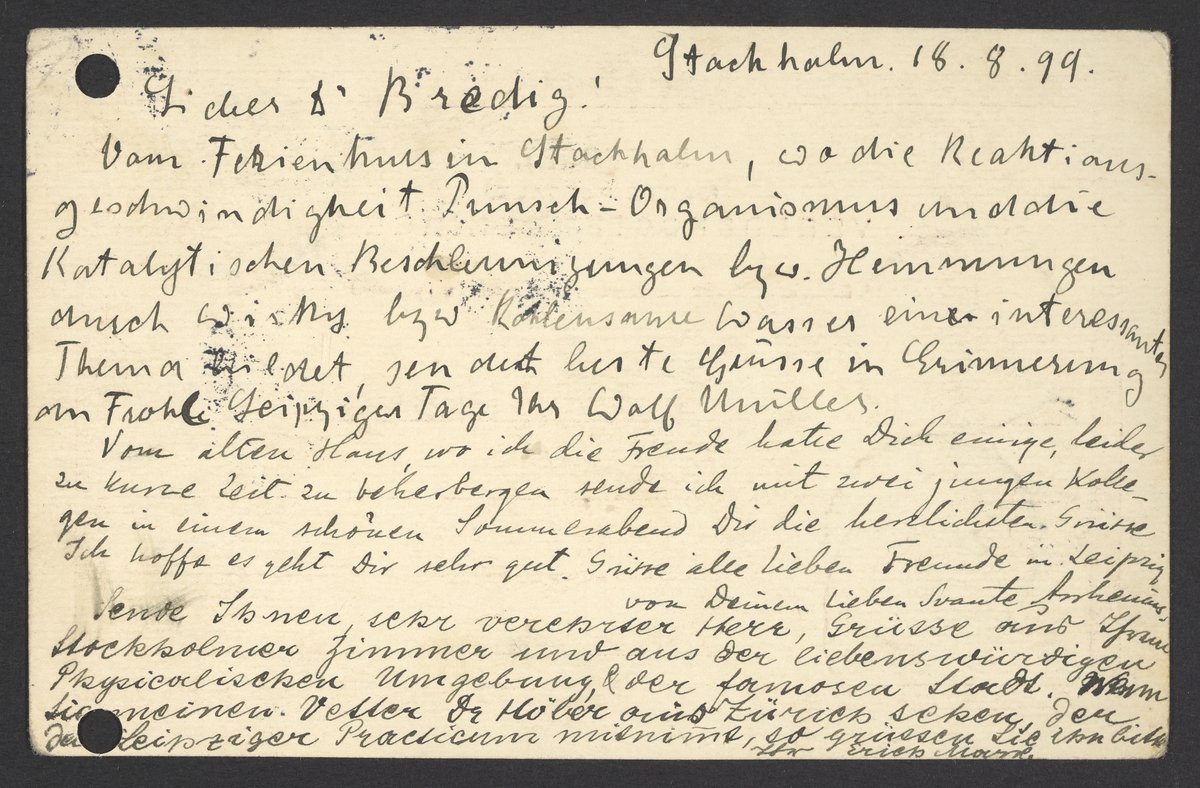 Stockholm. 18. 8. 99.
Lieber Dr Bredig!
Vom Ferienkurs in Stockholm, wo die Reaktions-
geschwindigkeit Punsch-Organismus und die
Katalytischen Beschleunigungen bzw. Hemmungen
durch Wisky bzw Kohlensaure Wasser ein interessantes
Thema bildet, sendet beste Grüsse in Erinnerung
an Frohe Leipziger Tage Ihr Wolf Müller.
Vom alten Haus, wo ich die Freude hatte Dich einige, leider
zu kurze Zeit zu beherbergen sende ich mit zwei jungen Kolle-
gen in einem schönen Sommerabend Dir die herzlichsten Grüsse
Ich hoffe es geht Dir sehr gut. Grüsse alle lieben Freunde in Leipzig
von Deinem lieben Svante Arrhenius
Sende Ihnen, sehr verehrter Herr, Grüsse aus Ihrem
Stockholmer Zimmer und aus der liebenswürdigen
Physicalischen Umgebung, & der famosen Stadt. Wenn
Sie meinen Vetter Dr Höber aus Zürich sehen, der
das Leipziger Practicum mitnimt, so grüssen Sie ihn bitte
Ihr Erich